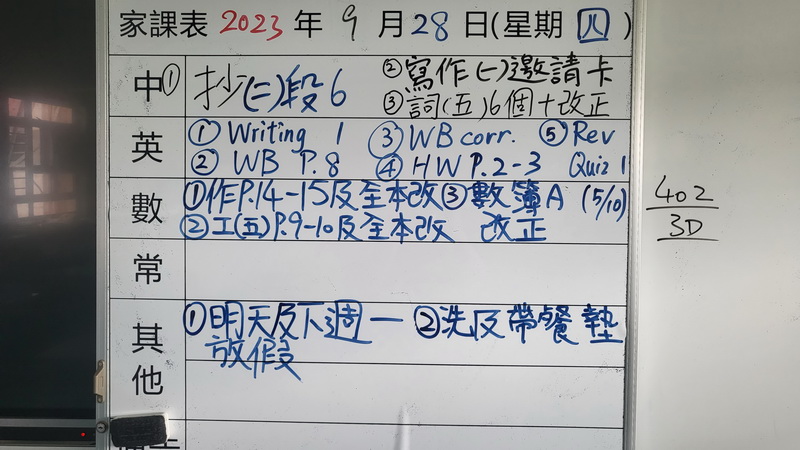 家課表 2023 年 9 月 28 日(星期 四 )
中 ① 抄(二)段6 ② 寫作(一)邀請卡
③ 詞(五)6個+改正
英 ① Writing 1 ③ WB corr. ⑤ Rev
② WB P.8 ④ HW P.2-3 Quiz 1
數 ①作P.14-15及全本改 ③ 數簿A (5/10)
②工(五)P.9-10及全本改 改正
常
其他 ①明天及下週一 ②洗及帶餐墊
放假
402
3D